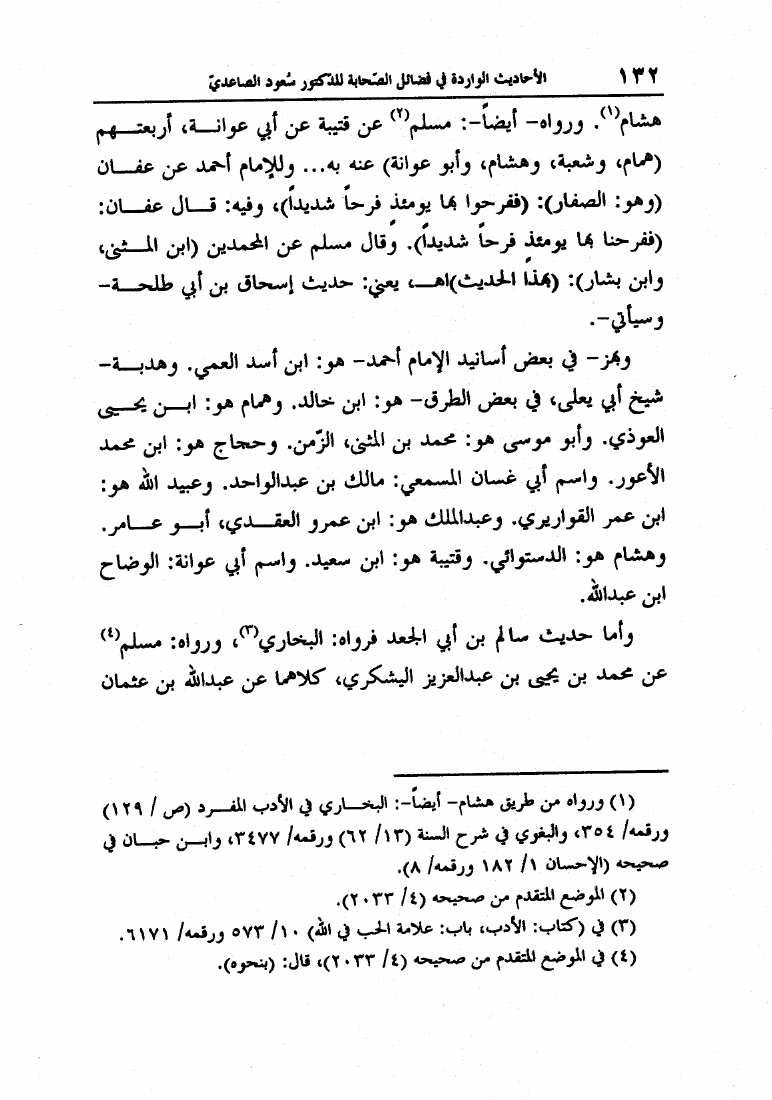 ١٣٢ الأحاديث الواردة في فضائل الصّحابة للدّكتور سُعود الصاعديّ
هشام(١). ورواه- أيضاً-: مسلم(٢) عن قتيبة عن أبي عوانـة، أربعتـهم
(همام، وشعبة، وهشام، وأبو عوانة) عنه به... وللإمام أحمد عن عفـان
(وهو: الصفار): (ففرحوا بها يومئذٍ فرحاً شديداً)، وفيه: قـال عفـان:
(ففرحنا بها يومئذٍ فرحاً شديداً). وقال مسلم عن المحمدين (ابن المـثنى،
وابن بشار): (بهذا الحديث)اهـ، يعني: حديث إسحاق بن أبي طلحـة-
وسيأتي-.
وبهز- في بعض أسانيد الإمام أحمد- هو: ابن أسد العمي. وهدبـة-
شيخ أبي يعلى، في بعض الطرق- هو: ابن خالد. وهمام هو: ابـن يحـيى
العوذي. وأبو موسى هو: محمد بن المثنى، الزّمن. وحجاج هو: ابن محمد
الأعور. واسم أبي غسان المسمعي: مالك بن عبدالواحد. وعبيد الله هو:
ابن عمر القواريري. وعبدالملك هو: ابن عمرو العقـدي، أبـو عـامر.
وهشام هو: الدستوائي. وقتيبة هو: ابن سعيد. واسم أبي عوانة: الوضاح
ابن عبدالله.
وأما حديث سالم بن أبي الجعد فرواه: البخاري(٣)، ورواه: مسلم(٤)
عن محمد بن يحيى بن عبدالعزيز اليشكري، كلاهما عن عبدالله بن عثمان
(١) ورواه من طريق هشام- أيضاً-: البخـاري في الأدب المفـرد (ص / ١٢٩)
ورقمه/ ٣٥٤، والبغوي في شرح السنة (١٣/ ٦٢) ورقمه/ ٣٤٧٧، وابـن حبـان في
صحيحه (الإحسان ١/ ١٨٢ ورقمه/ ٨).
(٢) الموضع المتقدم من صحيحه (٤/ ٢٠٣٣).
(٣) في (كتاب: الأدب، باب: علامة الحب في الله) ١٠/ ٥٧٣ ورقمه/ ٦١٧١.
(٤) في الموضع المتقدم من صحيحه (٤/ ٢٠٣٣)، قال: (بنحوه).